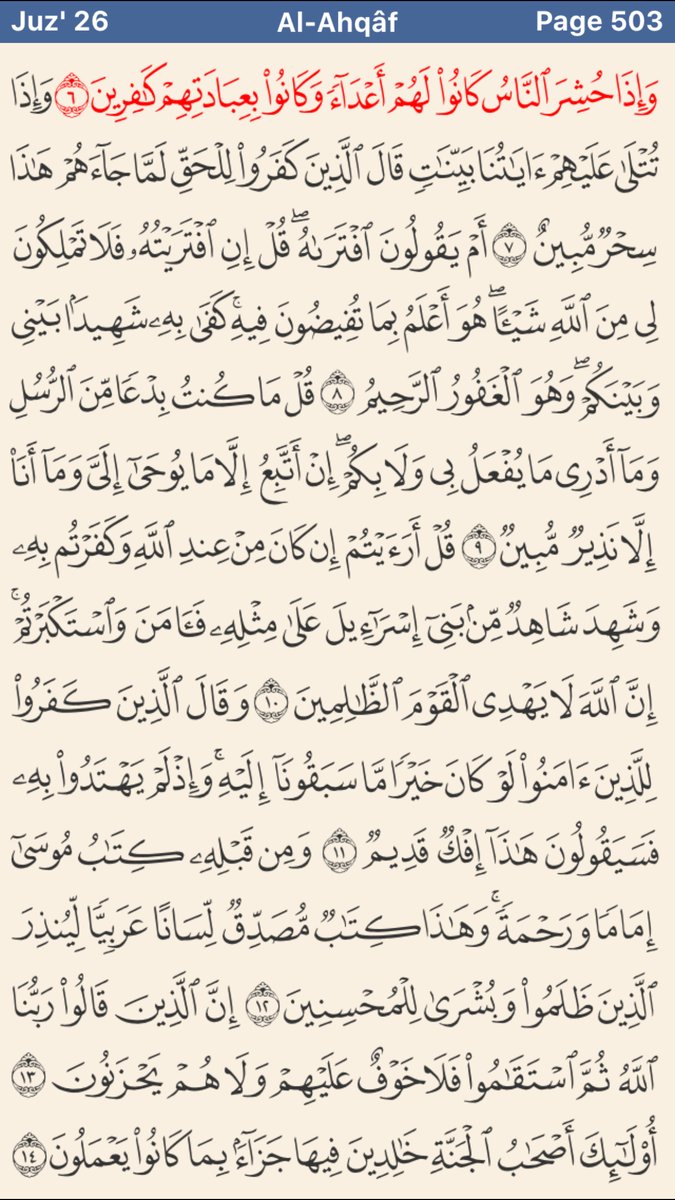 Juz' 26 Al-Ahqâf Page 503
وَإِذَا حُشِرَ ٱلنَّاسُ كَانُوا۟ لَهُمْ أَعْدَآءً وَكَانُوا۟ بِعِبَادَتِهِمْ كَـٰفِرِينَ ٦ وَإِذَا
تُتْلَىٰ عَلَيْهِمْ ءَايَـٰتُنَا بَيِّنَـٰتٍ قَالَ ٱلَّذِينَ كَفَرُوا۟ لِلْحَقِّ لَمَّا جَآءَهُمْ هَـٰذَا
سِحْرٌ مُّبِينٌ ٧ أَمْ يَقُولُونَ ٱفْتَرَىٰهُ ۖ قُلْ إِنِ ٱفْتَرَيْتُهُۥ فَلَا تَمْلِكُونَ
لِى مِنَ ٱللَّهِ شَيْـًٔا ۖ هُوَ أَعْلَمُ بِمَا تُفِيضُونَ فِيهِ ۚ كَفَىٰ بِهِۦ شَهِيدًۢا بَيْنِى
وَبَيْنَكُمْ ۖ وَهُوَ ٱلْغَفُورُ ٱلرَّحِيمُ ٨ قُلْ مَا كُنتُ بِدْعًا مِّنَ ٱلرُّسُلِ
وَمَآ أَدْرِى مَا يُفْعَلُ بِى وَلَا بِكُمْ ۖ إِنْ أَتَّبِعُ إِلَّا مَا يُوحَىٰٓ إِلَىَّ وَمَآ أَنَا۠
إِلَّا نَذِيرٌ مُّبِينٌ ٩ قُلْ أَرَءَيْتُمْ إِن كَانَ مِنْ عِندِ ٱللَّهِ وَكَفَرْتُم بِهِۦ
وَشَهِدَ شَاهِدٌ مِّنۢ بَنِىٓ إِسْرَٰٓءِيلَ عَلَىٰ مِثْلِهِۦ فَـَٔامَنَ وَٱسْتَكْبَرْتُمْ ۚ
إِنَّ ٱللَّهَ لَا يَهْدِى ٱلْقَوْمَ ٱلظَّـٰلِمِينَ ١٠ وَقَالَ ٱلَّذِينَ كَفَرُوا۟
لِلَّذِينَ ءَامَنُوا۟ لَوْ كَانَ خَيْرًا مَّا سَبَقُونَآ إِلَيْهِ ۚ وَإِذْ لَمْ يَهْتَدُوا۟ بِهِۦ
فَسَيَقُولُونَ هَـٰذَآ إِفْكٌ قَدِيمٌ ١١ وَمِن قَبْلِهِۦ كِتَـٰبُ مُوسَىٰٓ
إِمَامًا وَرَحْمَةً ۚ وَهَـٰذَا كِتَـٰبٌ مُّصَدِّقٌ لِّسَانًا عَرَبِيًّا لِّيُنذِرَ
ٱلَّذِينَ ظَلَمُوا۟ وَبُشْرَىٰ لِلْمُحْسِنِينَ ١٢ إِنَّ ٱلَّذِينَ قَالُوا۟ رَبُّنَا
ٱللَّهُ ثُمَّ ٱسْتَقَـٰمُوا۟ فَلَا خَوْفٌ عَلَيْهِمْ وَلَا هُمْ يَحْزَنُونَ ١٣
أُو۟لَـٰٓئِكَ أَصْحَـٰبُ ٱلْجَنَّةِ خَـٰلِدِينَ فِيهَا جَزَآءًۢ بِمَا كَانُوا۟ يَعْمَلُونَ ١٤